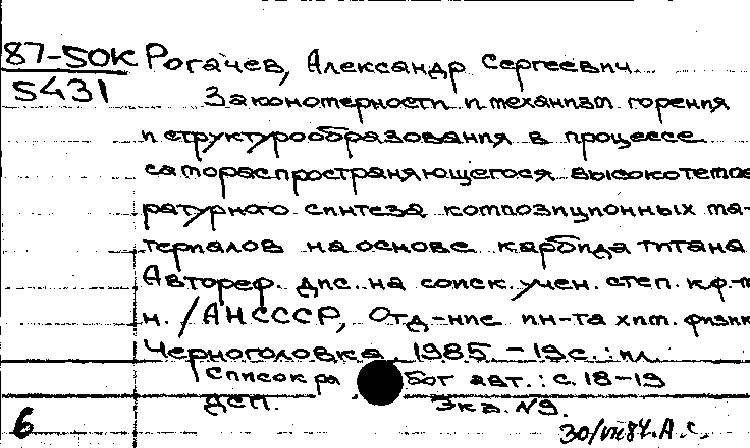 87-50К Рогачев, Александр Сергеевич.
5431
Закономерности и механизм горения
и структурообразования в процессе
самораспространяющегося высокотемпе
ратурного синтеза композиционных ма-
териалов на основе карбида титана
Автореф. дис. на соиск. учен. степ. к.ф-м
н. / АНСССР, Отд-ние ин-та хим. физик
Черноголовка, 1985 - 19с. : ил.
Список работ авт. : с. 18-19
ДСП. Экз. №9.
6